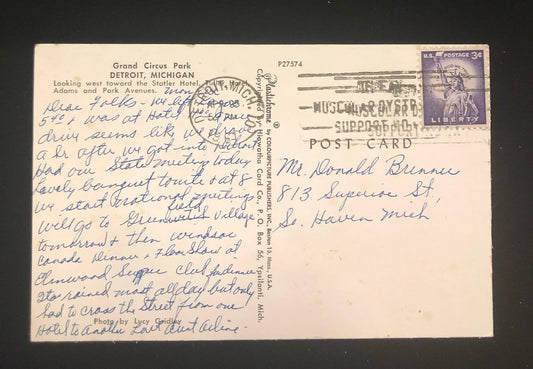 Grand Circus Park
DETROIT, MICHIGAN
Looking west toward the Statler Hotel,
Adams and Park Avenues.
Mon
Dear Folks - We left
5 40 & was at Hotel
drive seems like we drove
a hr after we got into Detroit
Had our State meeting today
Lovely banquet tonite & at 8
we start national meetings
Will go to Greenfield Village
tomorrow & then Windsor
Canada Dinner & Floor Show at
Elmwood Supper Club for dinner
rained most all day but only
had to cross the Street from one
Hotel to Another Love Aunt Arline
Photo by Lucy Gridley
Plastichrome ® by COLOURPICTURE PUBLISHERS, INC., Boston 15, Mass., U.S.A.
Copyright by Hiawatha Card Co., P. O. Box 56, Ypsilanti, Mich.
P27574
DETROIT, MICH.
PM
MUSCULAR DYSTR
MUSCULAR D
SUPPORT
SUPPORT
U.S. POSTAGE 3¢
LIBERTY
POST CARD
Mr. Donald Brenner
813 Superior St,
So. Haven Mich